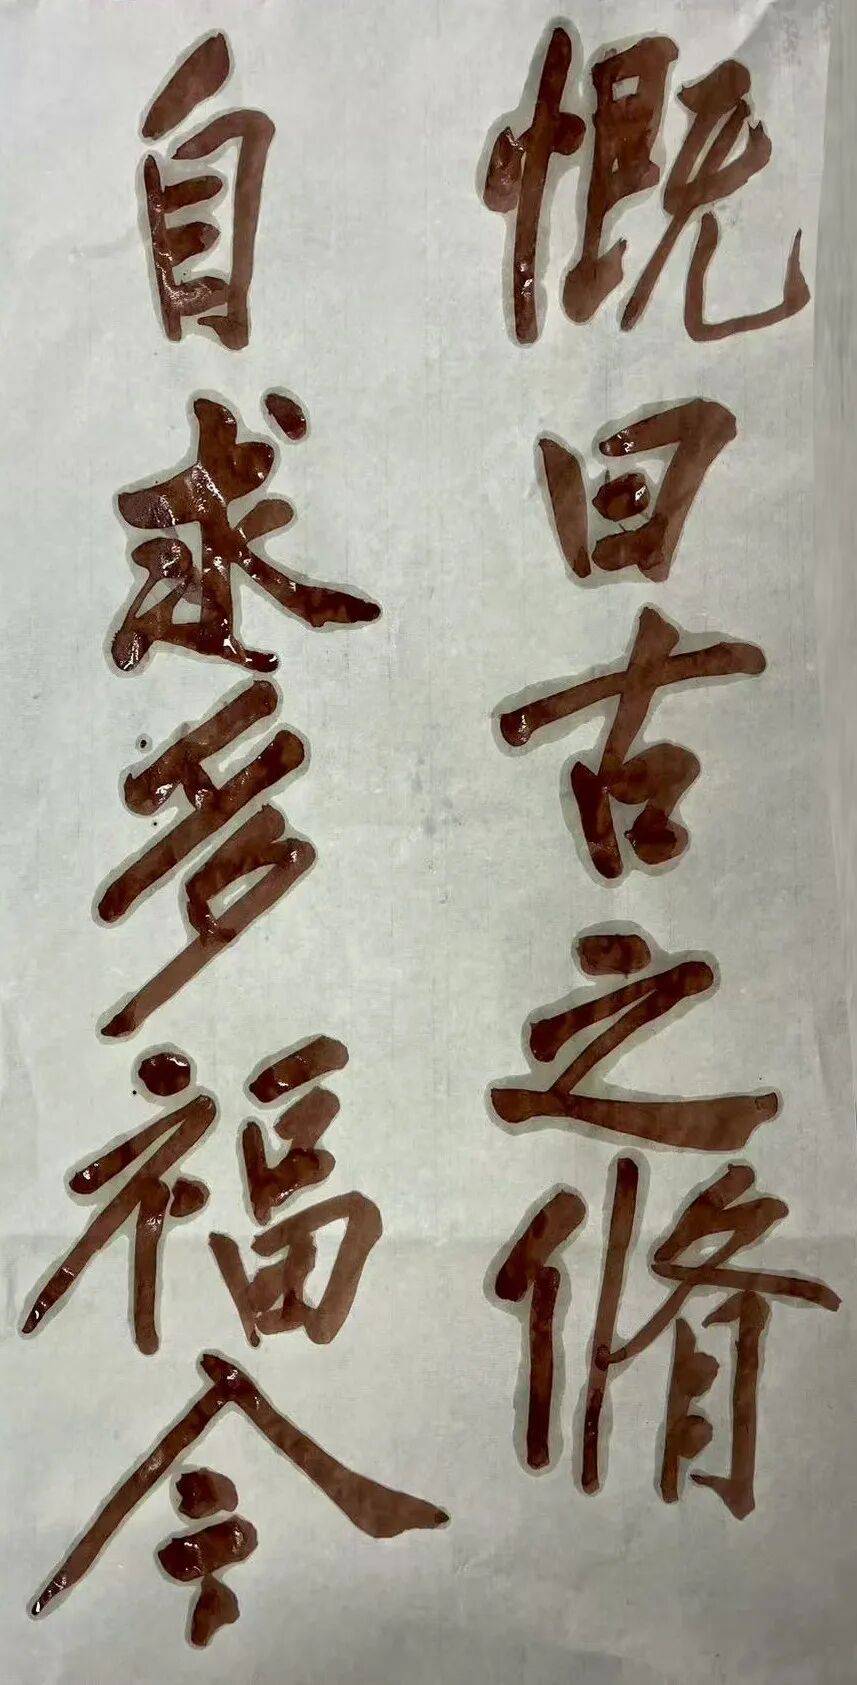 慨曰古之脩
自求多福今